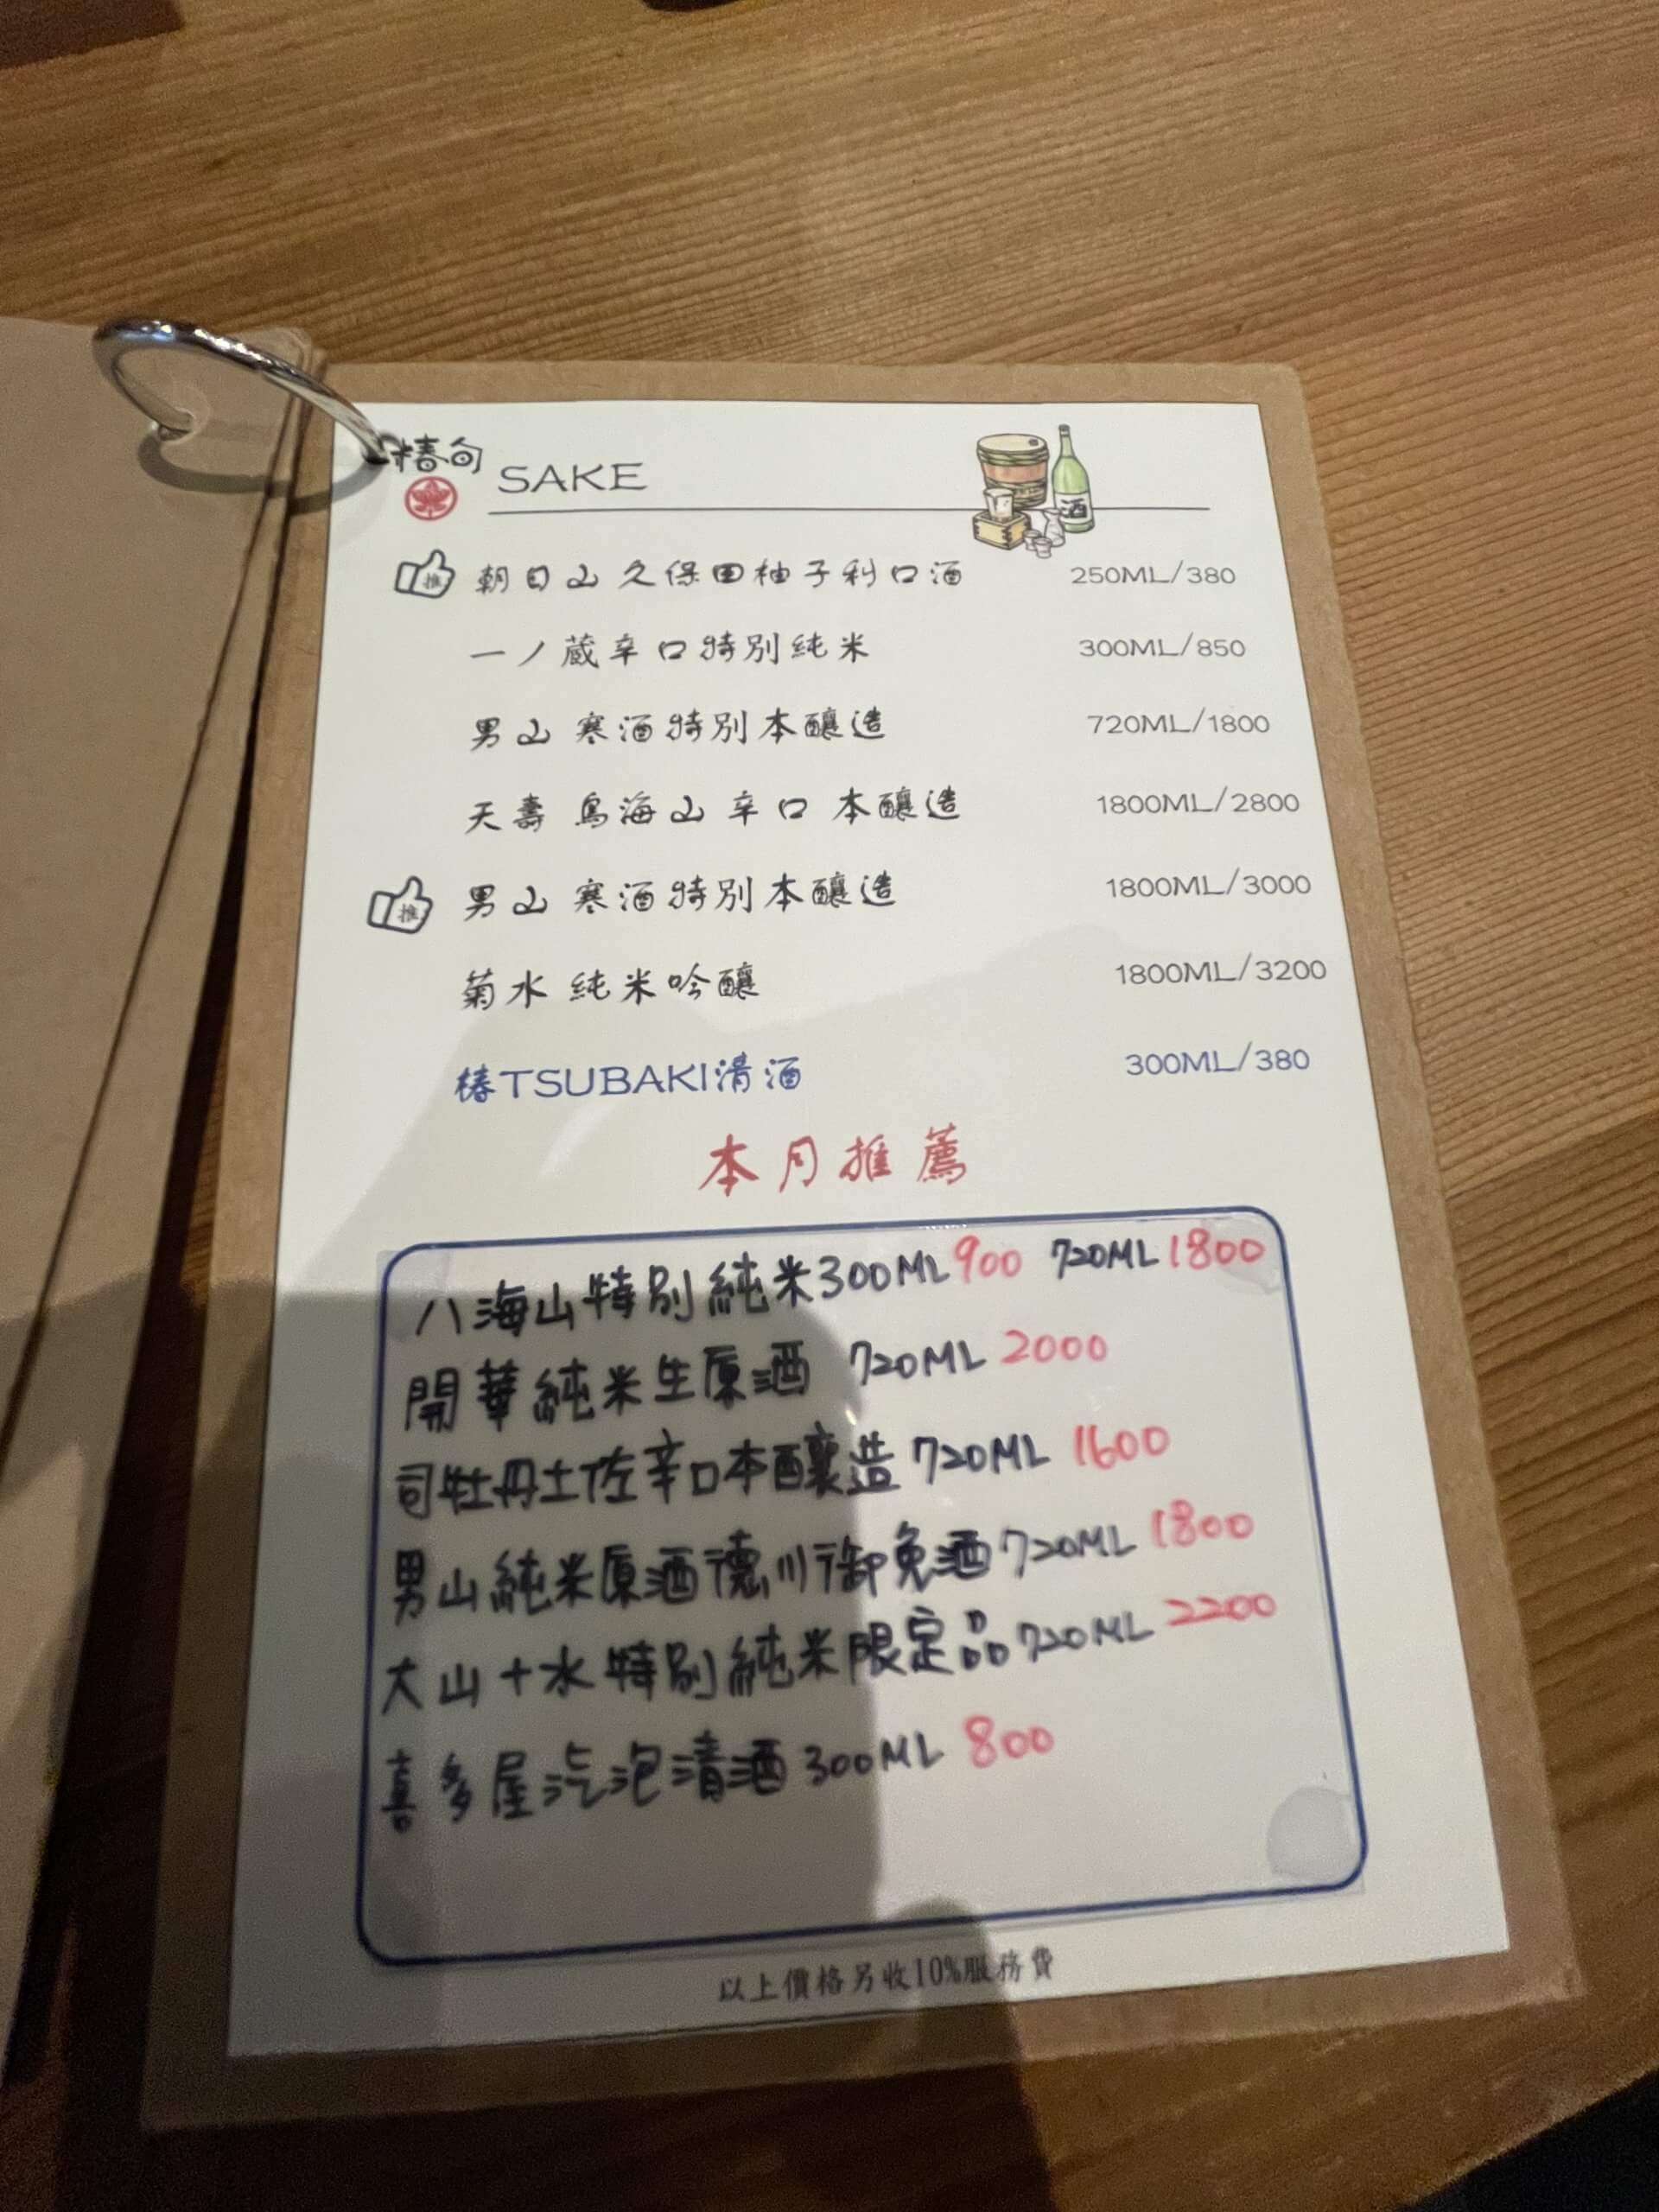 椿旬
SAKE
酒
推 朝日山 久保田柚子利口酒 250ML/380
一ノ蔵辛口特別純米 300ML/850
男山 寒酒特別本釀造 720ML/1800
天壽 鳥海山 辛口 本釀造 1800ML/2800
推 男山 寒酒特別本釀造 1800ML/3000
菊水 純米吟釀 1800ML/3200
椿TSUBAKI清酒 300ML/380
本月推薦
八海山特別純米300ML 900 720ML 1800
開華純米生原酒 720ML 2000
司牡丹土佐辛口本釀造 720ML 1600
男山純米原酒德川御免酒 720ML 1800
大山十水特別純米限定品 720ML 2200
喜多屋汽泡清酒 300ML 800
以上價格另收10%服務費